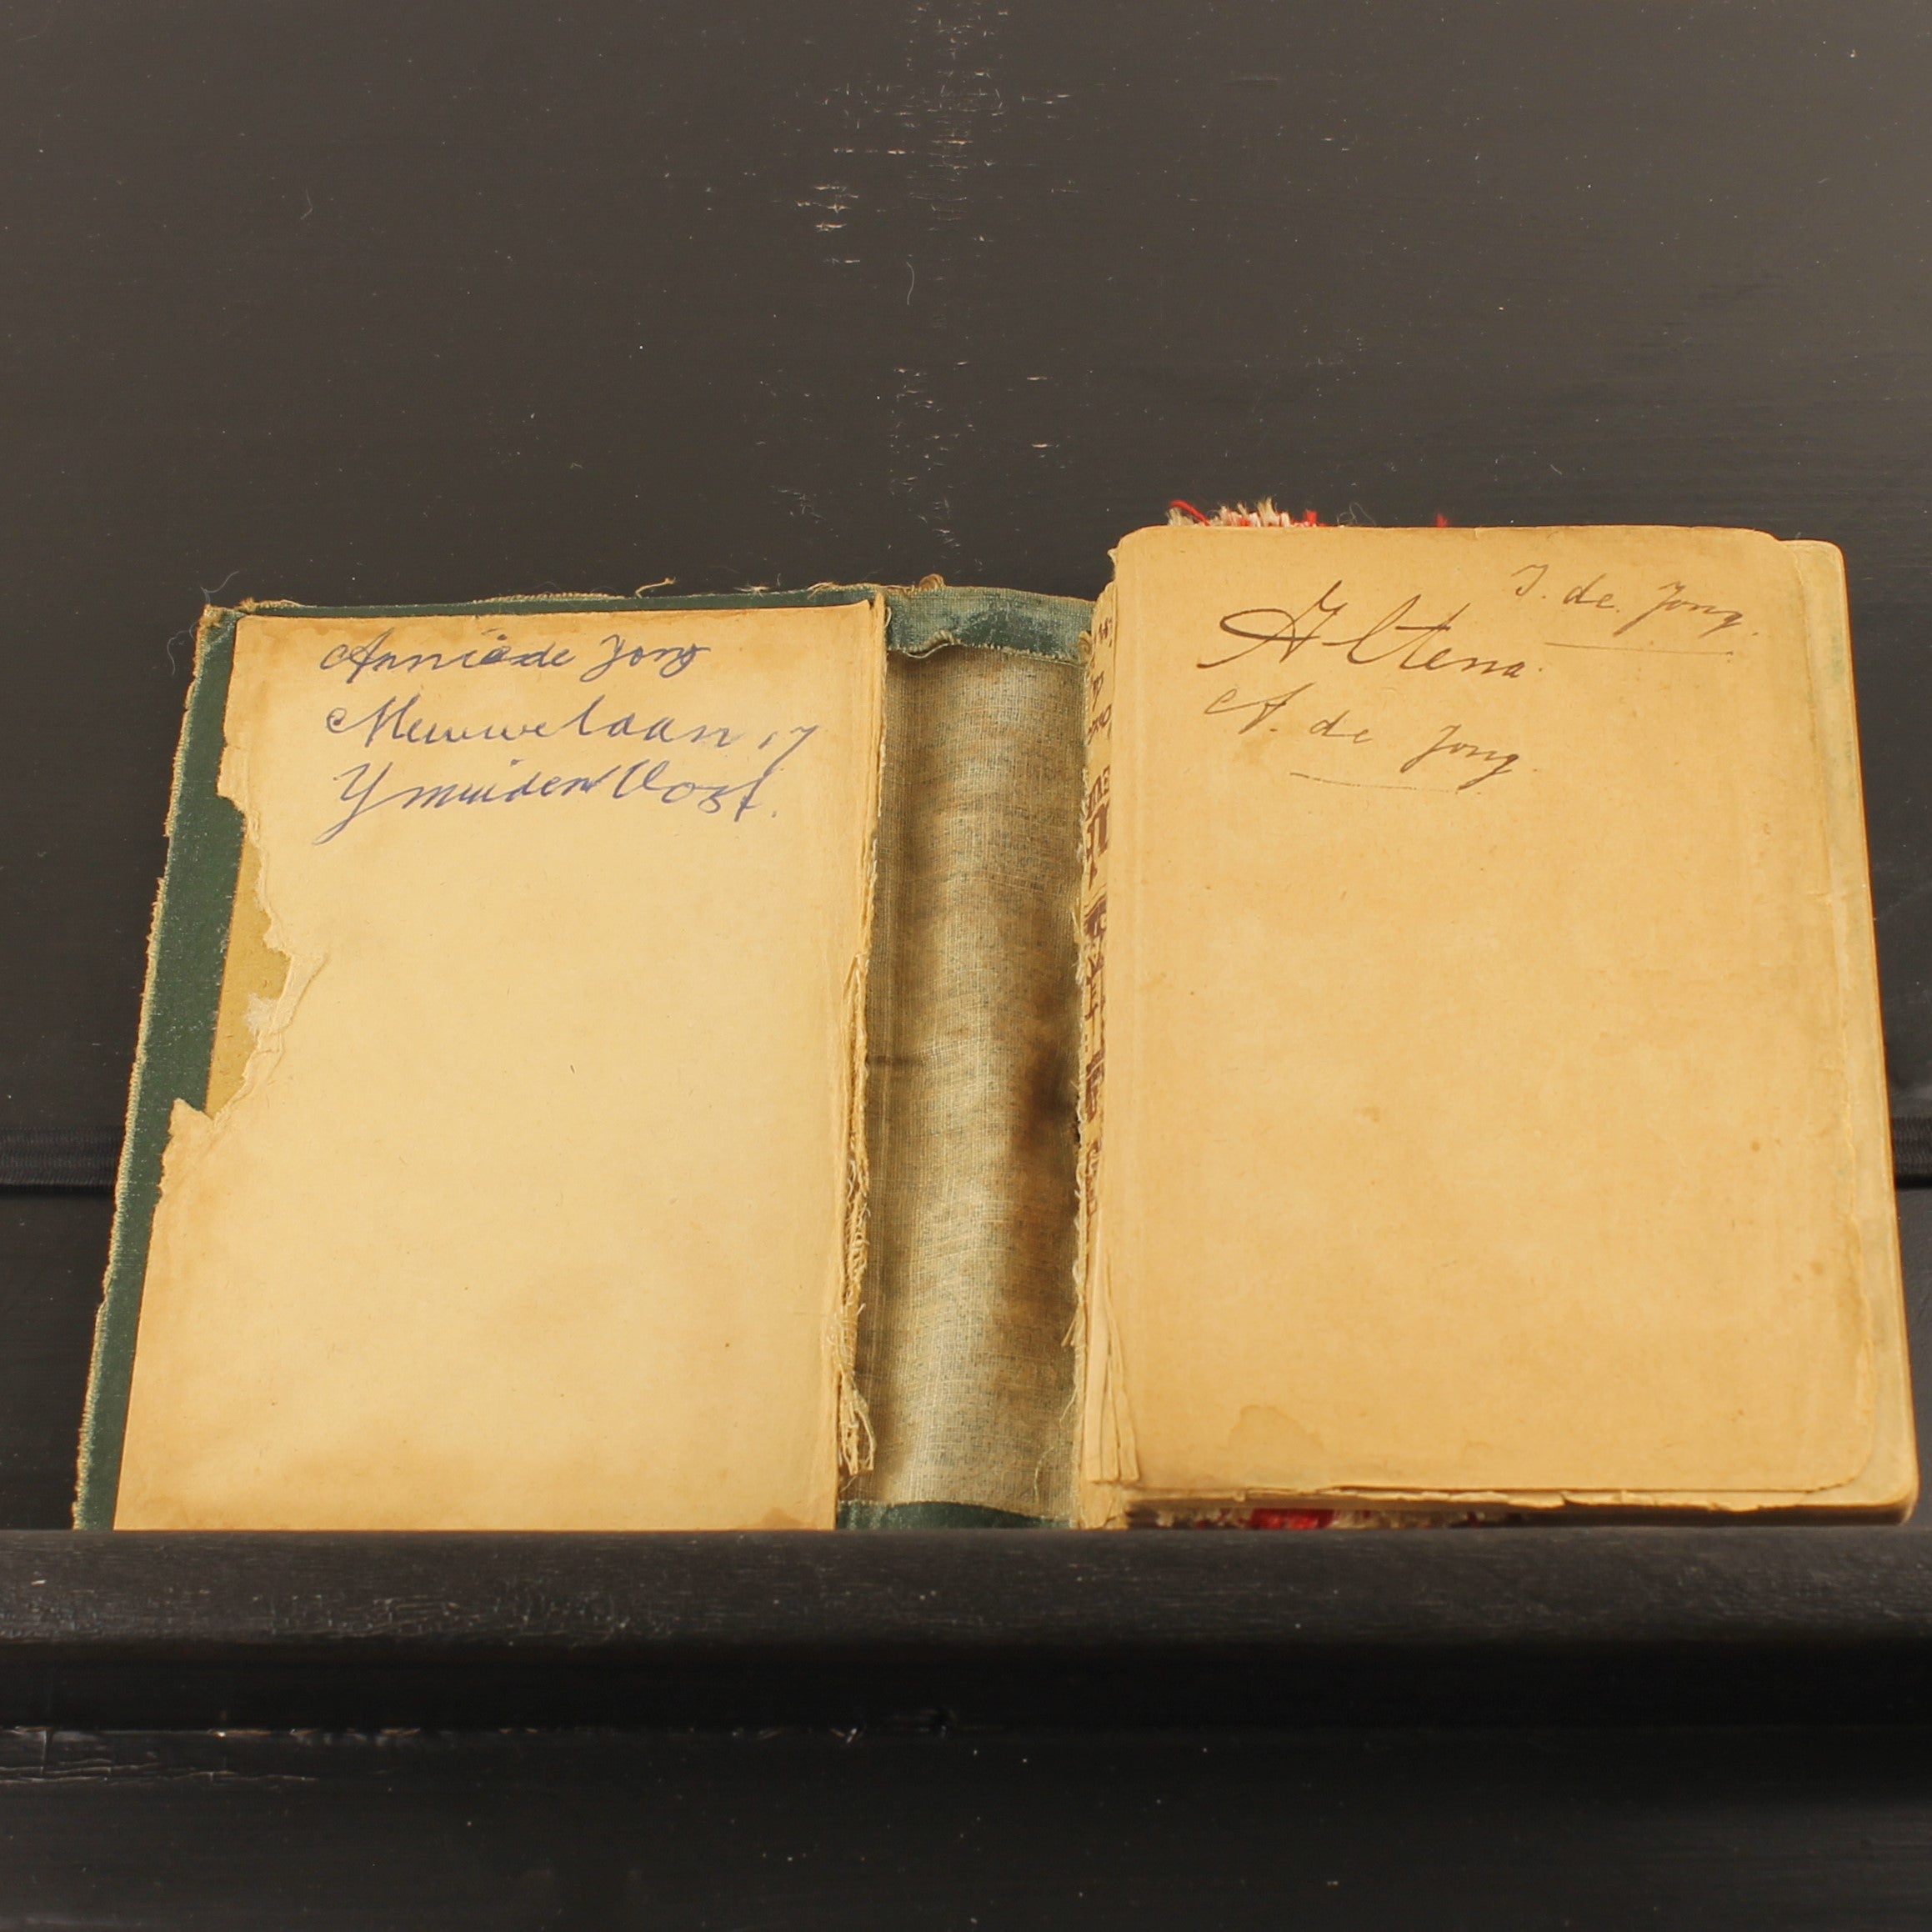 Annie de Jong
Meeuwelaan 17
Ymuiden Oost.
J. de. Jong.
Altena.
A. de Jong.